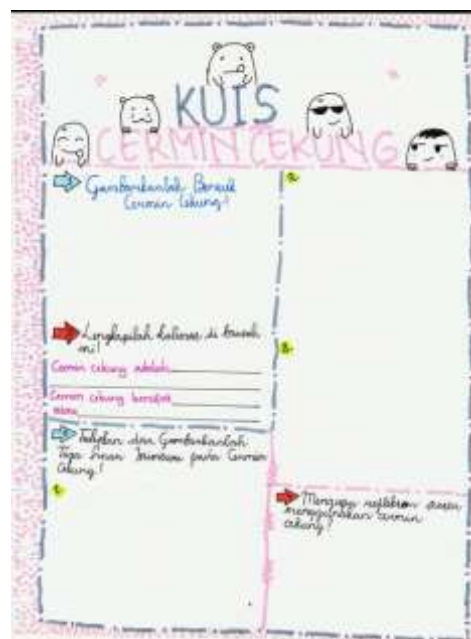 KUIS
CERMIN CEKUNG
Gambarkanlah Bentuk
Cermin Cekung!
Lengkapilah kalimat di bawah
ini!
Cermin cekung adalah
Cermin cekung bersifat
Tuliskan dan Gambarkanlah
Tiga Sinar Istimewa pada Cermin
Cekung!
1.
2.
3.
Mengapa reflektor senter
menggunakan cermin
cekung?